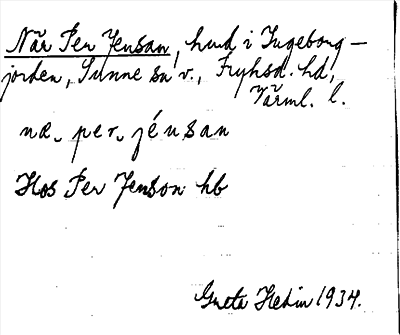 När Per Jensan, hmd i Ingeborg–
jorden, Sunne sn v., Fryksd. hd,
Värml. l.
næ. per. jéusan
Hos Per Jenson hb
Greta Hedin 1934.